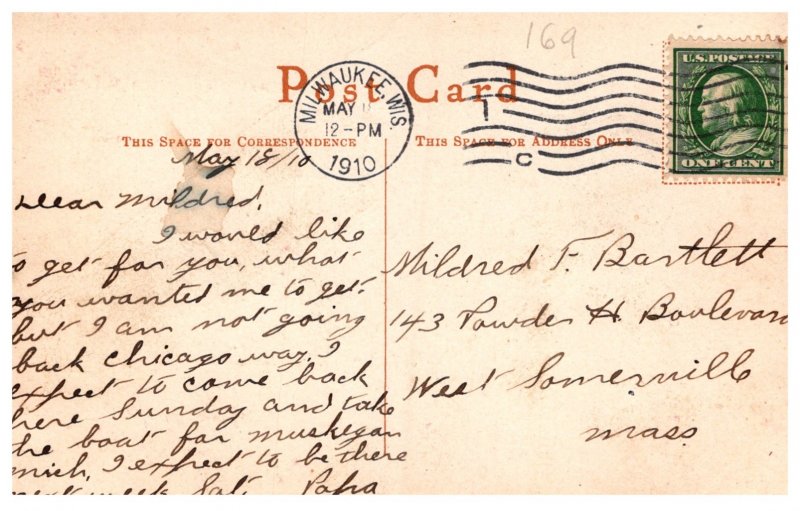 169
Post Card
U.S. POSTAGE
ONE CENT
MILWAUKEE, WIS.
MAY
12-PM
1910
THIS SPACE FOR CORRESPONDENCE
THIS SPACE FOR ADDRESS ONLY
May 18/10
Dear Mildred,
I would like
to get for you, what
you wanted me to get.
but I am not going
back Chicago way. I
expect to come back
here Sunday and take
the boat for Muskegan
Mich, I expect to be there
next week Sat. Papa
Mildred F. Bartlett
143 Powder H. Boulevard
West Somerville
Mass